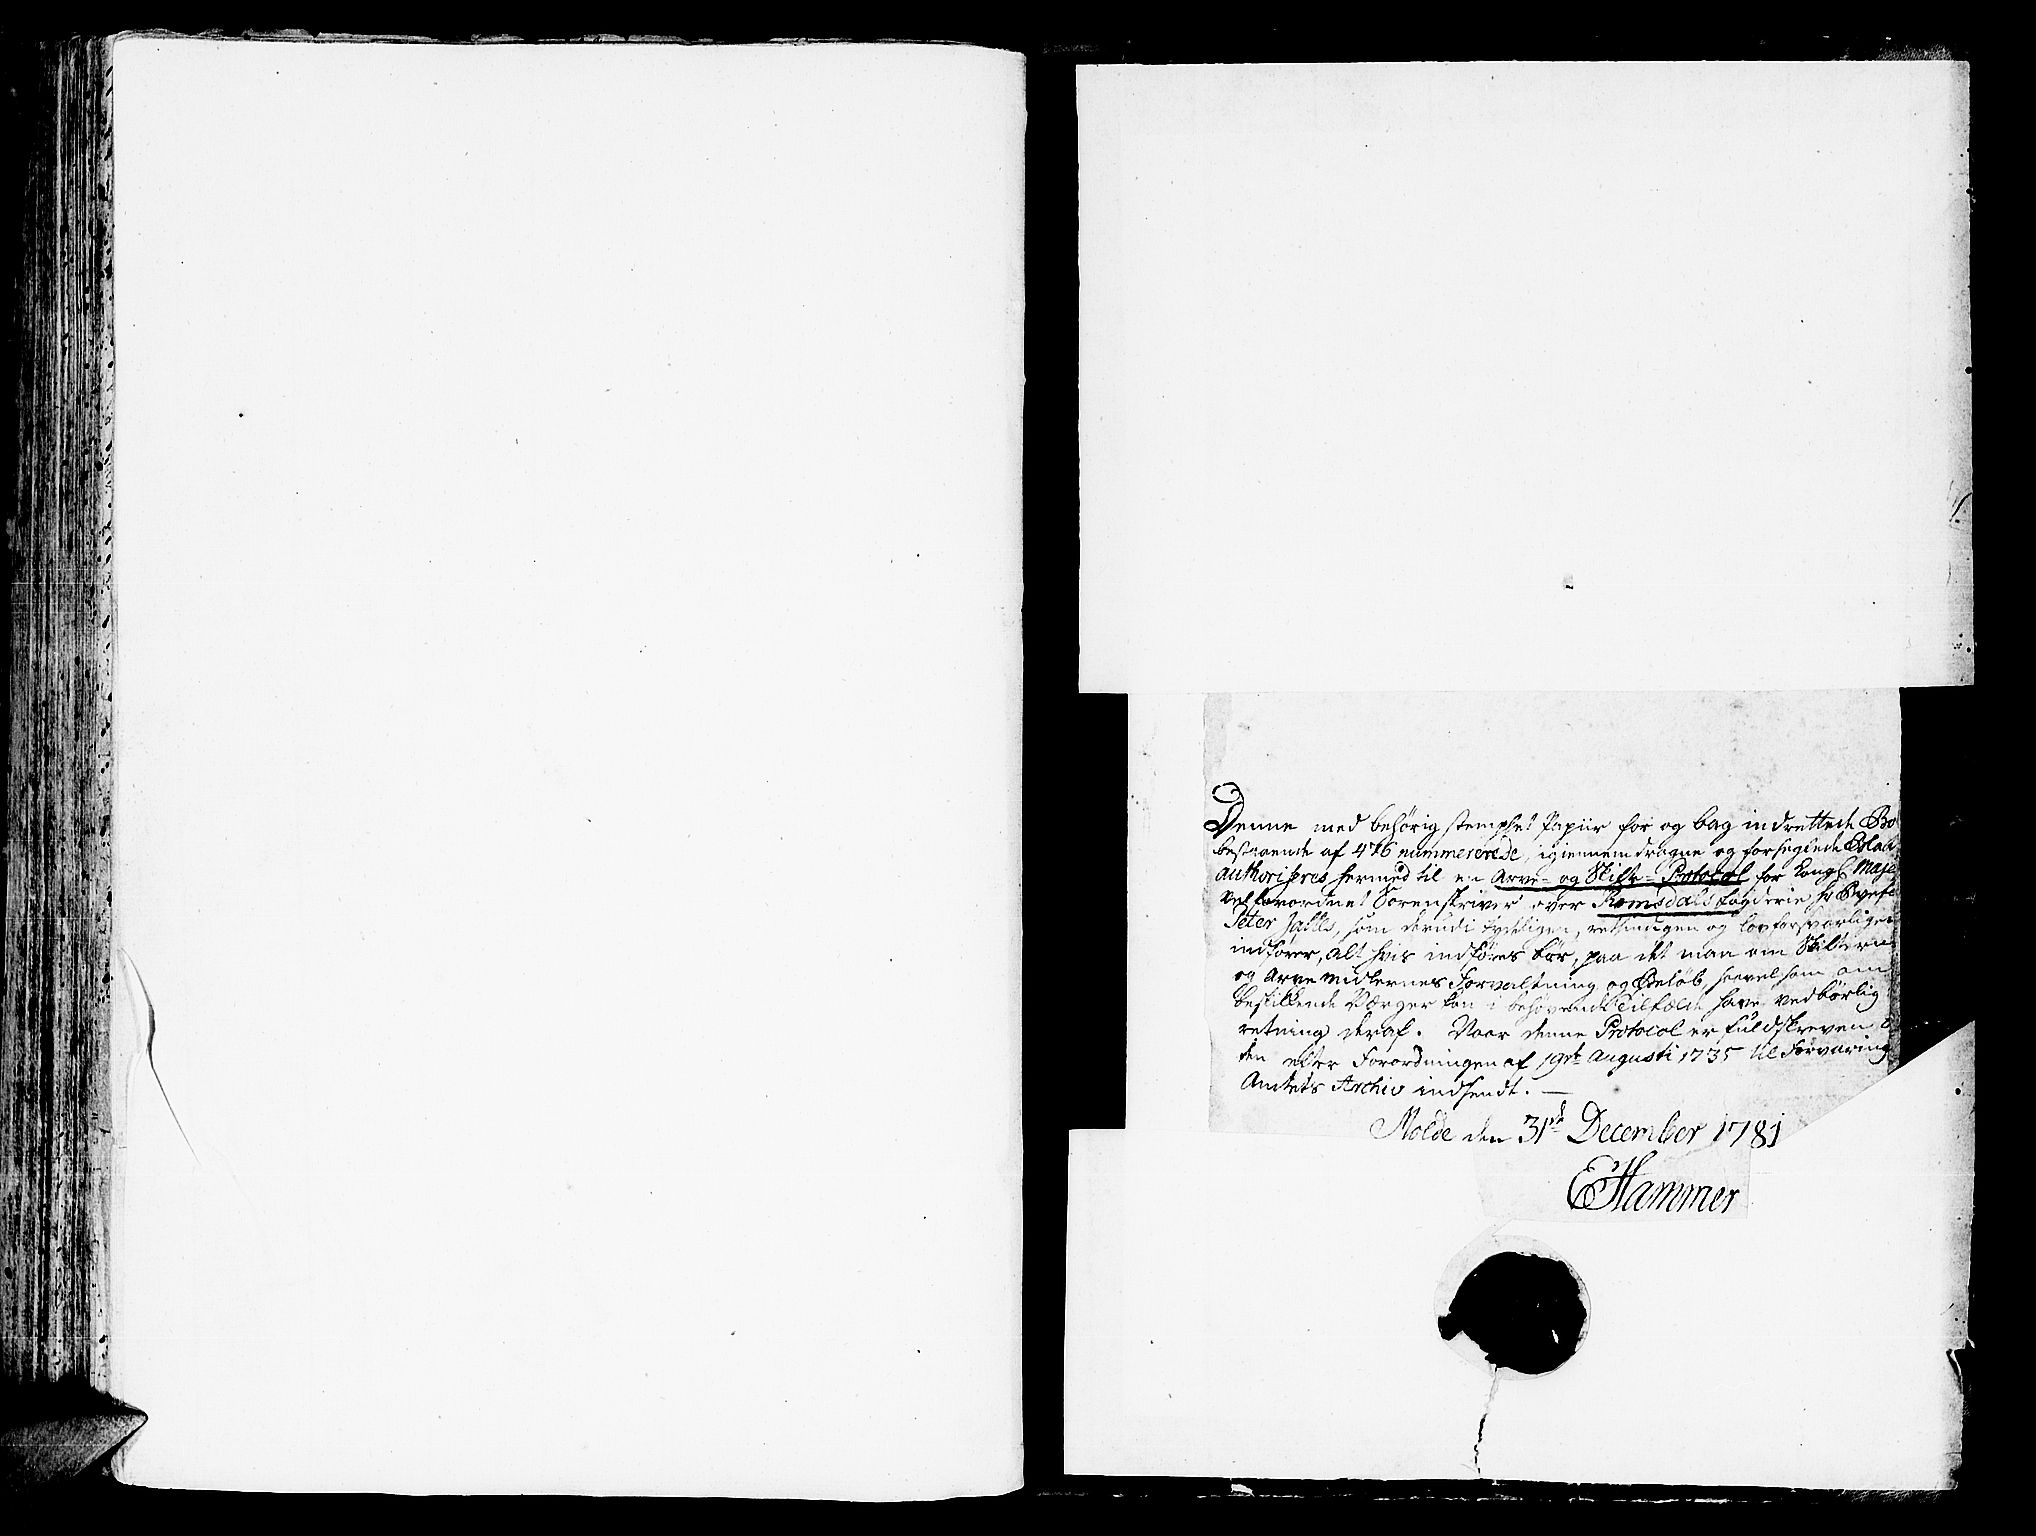 Denne med behörig stemplet Papiir for og bag indrettede Bo
bestaaende af 476 nummererede, igiennemdragne og forseglede Blad
authoriseres hermed til en Arve- og Skifte-Protocol for Kongl Maj
Velforordnet Sorenskriver over Romsdals Fogderie Hr
Peter som derudi tydeligen, retsindigen og lovforsvarligen
indförer, alt hvis indföres bör, paa det man om Skifterne
og Arve Midlernes Forvaltning og Belöb, saavelsom om
beskikkende Værger kan i behövende Tilfælde have vedbörlig
retning deraf. Naar denne Protocol er fuldskreven
den efter Forordningen af 19de Augusti 1735 til Forvaring
Amtets Archiv indsendt. —
Molde den 31de December 1781
EHammer